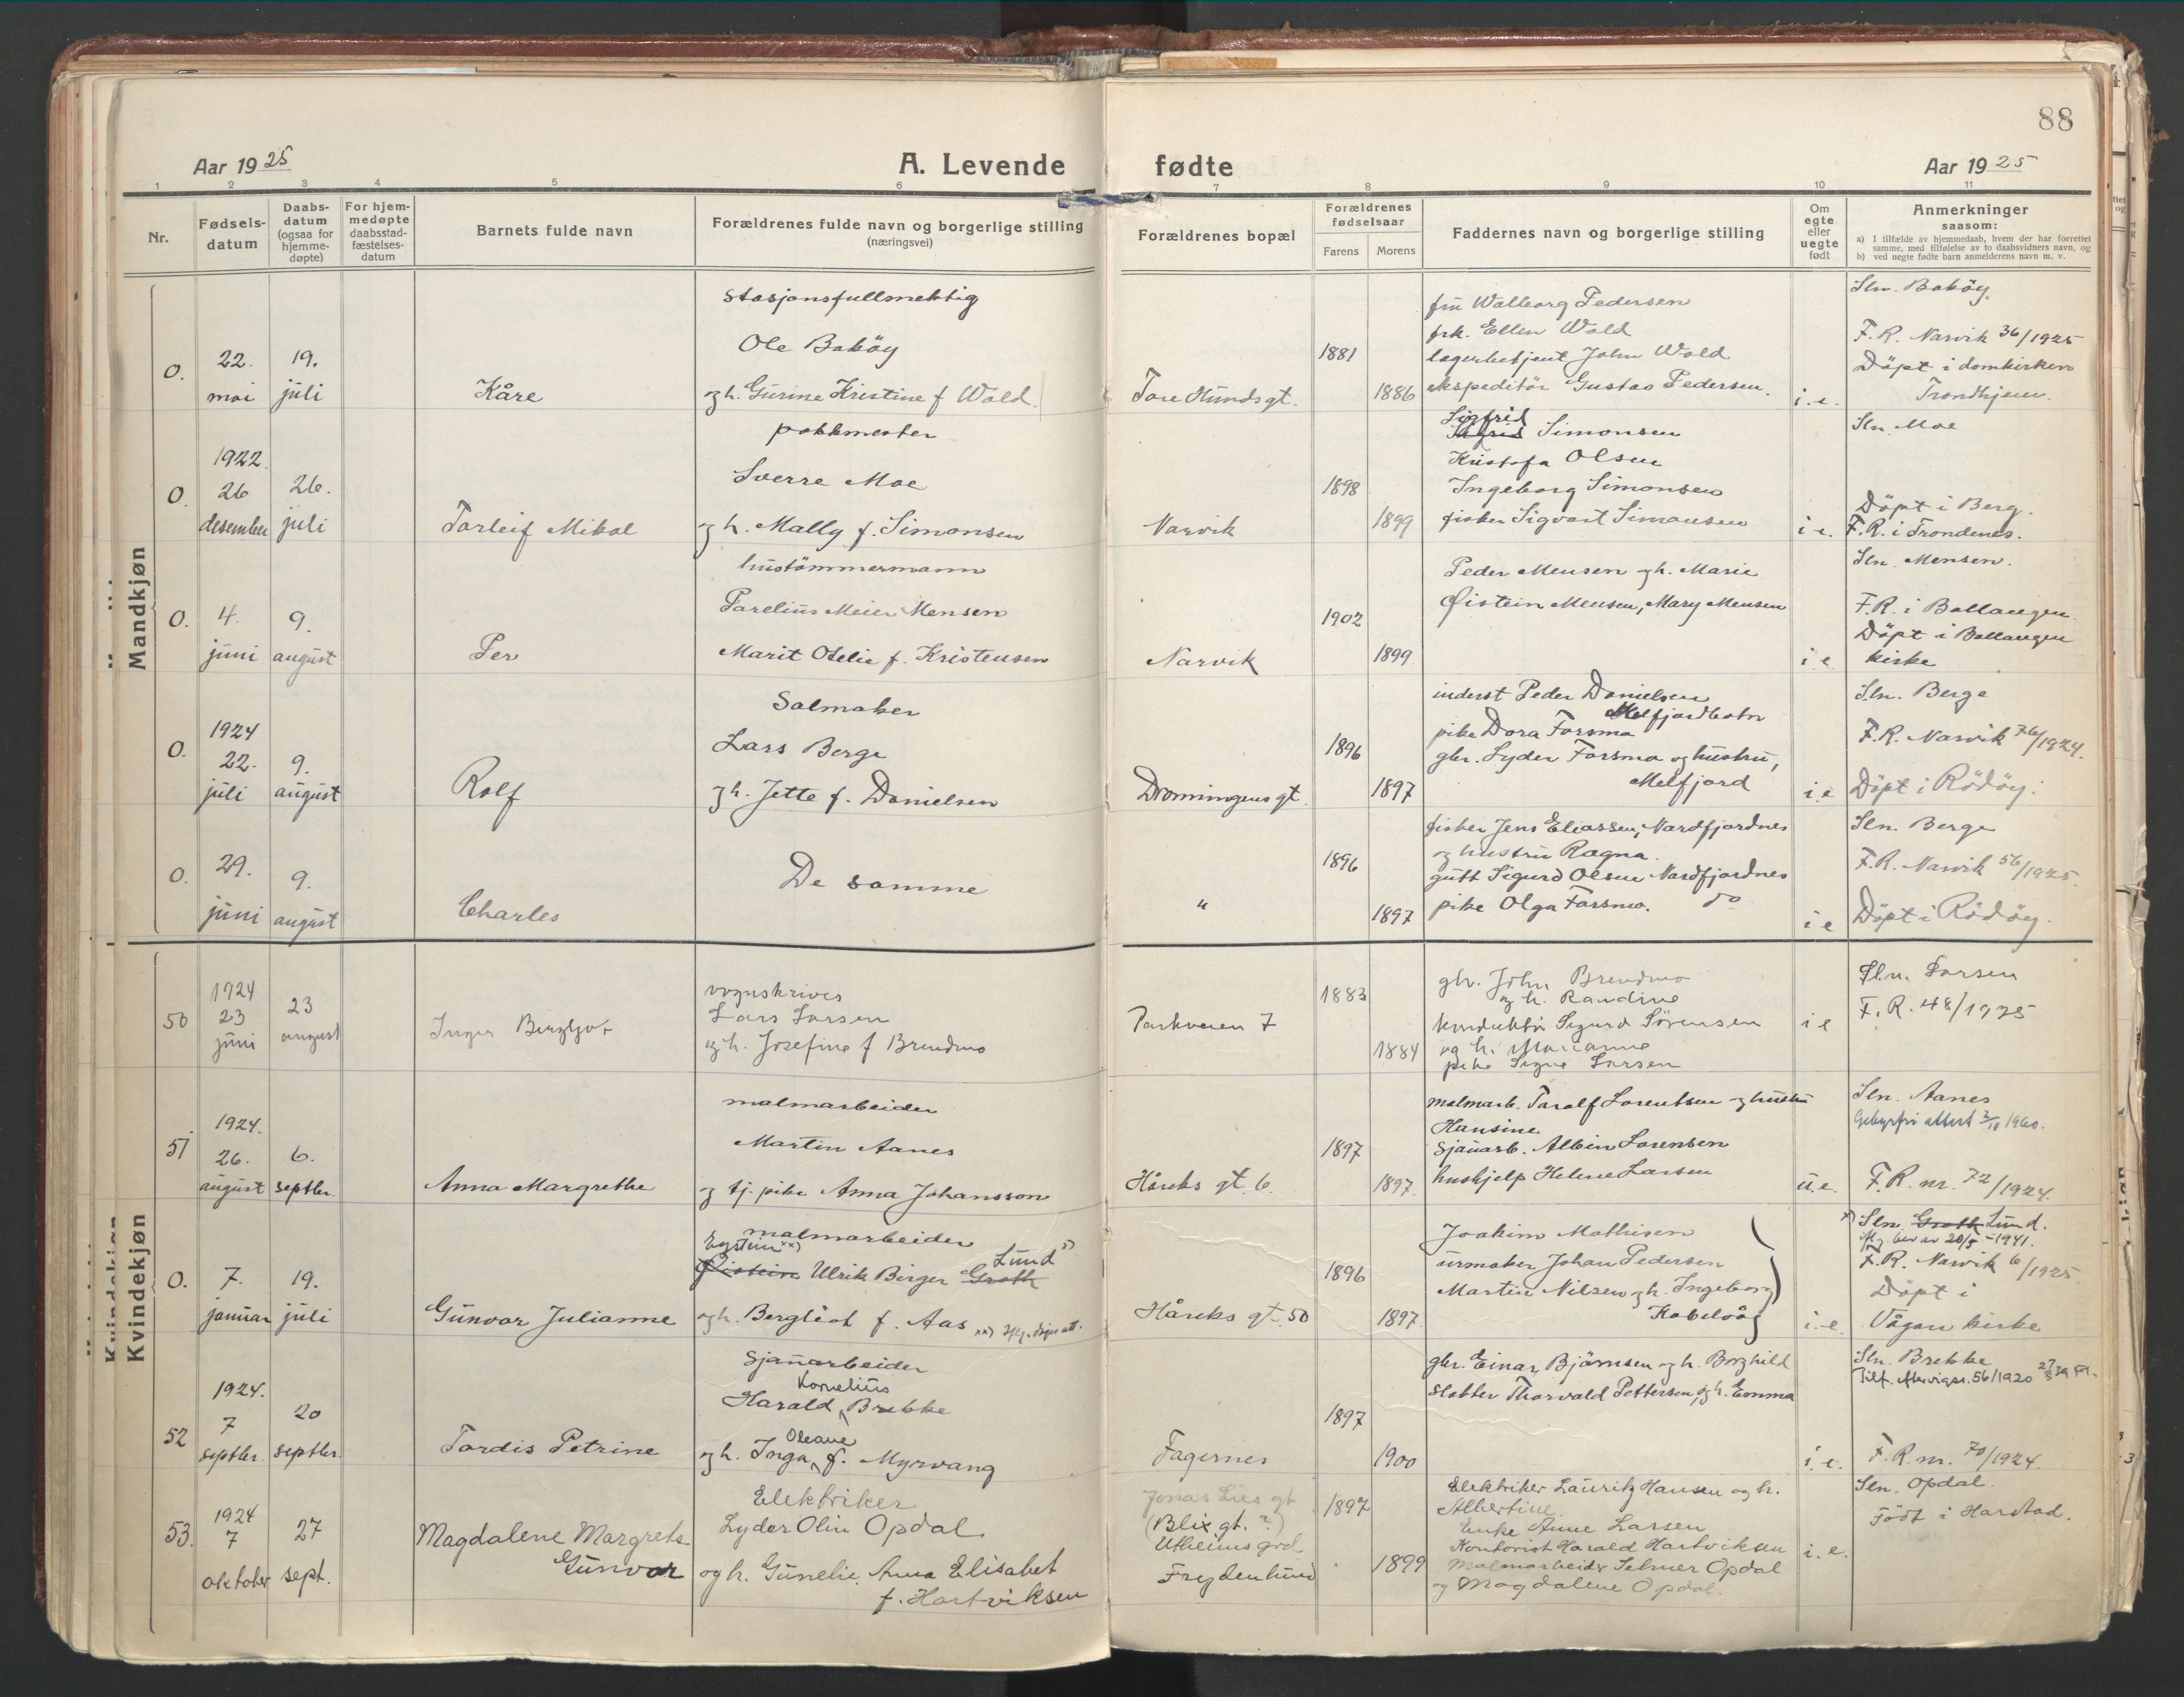 88
Aar 1925
A. Levende
fødte
Aar 1925
1 2 3 4 5 6 7 8 9 10 11
Nr.
Fødsels-
datum
Daabs-
datum
(ogsaa for
hjemme-
døpte)
For hjem-
medøpte
daabsstad-
fæstelses-
datum
Barnets fulde navn
Forældrenes fulde navn og borgerlige stilling
(næringsvei)
Forældrenes bopæl
Forældrenes
fødselsaar
Farens
Morens
Faddernes navn og borgerlige stilling
Om
egte
eller
uegte
født
Anmerkninger
saasom:
a) I tilfælde av hjemmedaab, hvem der har forrettet
samme, med tilføielse av to daabsvidners navn, og
b) ved uegte fødte barn anmelderens navn m. v.
Mandkjøn
0.
22.
mai
19.
juli
Kåre
Stasjonsfullmektig
Ole Boköy
og h. Gurine Kristine f Wold
Tore Hundsgt.
1881
1886
fru Walborg Pedersen
frk. Ellen Wold
lagerbetjent John Wold
ekspeditör Gustav Pedersen.
i.e.
Sln. Boköy.
F.R. Narvik 36/1925
Döpt i domkirken
Trondhjem.
0.
1922.
26
desember
26.
juli
Torleif Mikal
pakkmester
Sverre Moe
og h. Mally f. Simonsen
Narvik
1898
1899
Sigfrid
Simonsen
Kristofa Olsen
Ingeborg Simonsen
fisker Sigvart Simonsen
i e.
Sln. Moe
Döpt i Berg.
F.R. i Trondenes.
0.
4.
juni
9.
august
Per
hustömmermann
Parelius Meier Mensen
Marit Otelie f. Kristensen
Narvik
1902
1899
Peder Mensen og h. Marie
Øistein Mensen, Mary Mensen
i e
Sln. Mensen.
F.R. i Ballangen.
Döpt i Ballangen
kirke
0.
1924
22.
juli
9.
august
Rolf
Salmaker
Lars Berge
og h. Jette f. Danielsen
Dronningensgt.
1896
1897
inderst Peder Danielsen
Melfjordbotn
pike Dora Forsmo
gbr. Lyder Forsmo og hustru,
Melfjord
i e
Sln. Berge
F.R. Narvik 76/1924.
Döpt i Rödöy.
0.
29.
juni
9.
august
Charles
De samme
"
1896
1897
fisker Jens Eliassen, Nordfjordnes
og hustru Ragna.
gutt Sigurd Olsen Nordfjordnes
pike Olga Forsmo. do
i e
Sln. Berge
F.R. Narvik 56/1925.
Döpt i Rödöy.
Kvindekjøn
50
1924
23
juni
23
august
Inger Bergljot
vognskriver
Lars Larsen
og h. Josefine f Brendmo
Parkveien 7
1883
1884
gbr. John Brendmo
og h. Randine
konduktör Sigurd Sörensen
og h. Marianne
pike Signe Larsen
i e
Sln. Larsen
F.R. 48/1925
51
1924.
26.
august
6.
septbr.
Anna Margrethe
malmarbeider
Martin Aanes
og tj. pike Anna Johansson
Håreks gt. 6.
1897
1897.
malmarb. Toralf Lorentsen og hustru
Hansine
Sjauarb. Albin Lorensen
hushjelp Helene Larsen
u.e.
Sln. Aanes
Gebyrfri attest 3/10 1960.
F.R. nr. 72/1924.
0.
7.
januar
19.
juli
Gunvor Julianne
malmarbeider
Eystein xx) Lund x)
Øistein Ulrik Birger Groth
og h. Bergliot f. Aas xx) iflg. dåpsatt.
Håreks gt. 50
1896
1897.
Joakim Mathisen
urmaker Johan Pedersen
Martin Nilsen og h. Ingeborg
Kabelvåg
i.e.
x) Sln. Groth Lund.
iflg. bev av 20/5-1941.
F.R. Narvik 6/1925.
Döpt i
Vågan kirke
52
1924.
7
septbr.
20
septbr.
Tordis Petrine
Sjauarbeider
Kornelius
Harald Brekke
Oleane
og h. Inga f. Myrvang
Fagernes
1897
1900
gbr. Einar Björnsen og h. Borghild
Slakter Thorvald Pettersen og h. Emma
i. e.
Sln. Brekke
Tilf. efter vigsr. 56/1920 27/5 39
F.R. nr. 70/1924.
53.
1924
7
oktober
27
sept.
Magdalene Margrete
Gunvor
Elektriker
Lyder Olin Opdal
og h. Gunelie Anna Elisabet
f. Hartviksen
Jonas Lies gt
(Blix gt. ?)
Utheims grd
Frydenlund
1897
1899
Elektriker Lauritz Hansen og h.
Albertine
Enke Anne Larsen
Kontorist Harald Hartviksen
Malmarbeider Selmer Opdal
og Magdalene Opdal.
i. e.
Sln. Opdal.
Födt i Harstad.